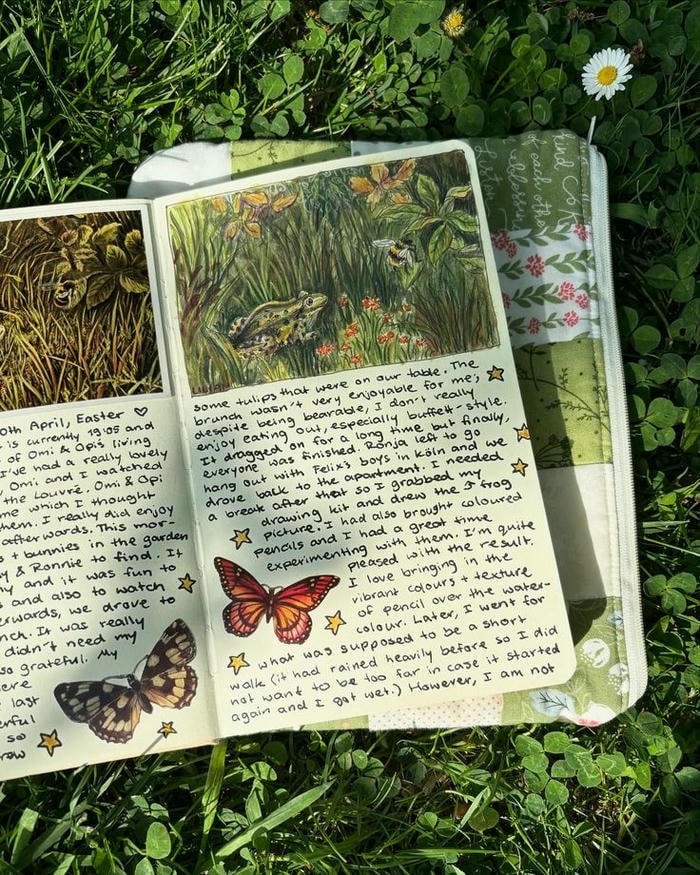 0th April, Easter ♡
is currently 19:05 and
of Omi & Opi's living
I've had a really lovely
Omi and I watched
the Louvre. Omi & Opi
me which I thought
them. I really did enjoy
afterwards. This mor-
+ bunnies in the garden
y & Ronnie to find. It
y and it was fun to
s and also to watch
erwards, we drove to
nch. It was really
didn't need my
so grateful. My
ere
e last
erful
so
row
some tulips that were on our table. The
brunch wasn't very enjoyable for me;
despite being bearable, I don't really
enjoy eating out, especially buffett-style.
It dragged on for a long time but finally,
everyone was finished. Ronja left to go
hang out with Felix's boys in köln and we
drove back to the apartment. I needed
a break after that so I grabbed my
drawing kit and drew the ↑ frog
picture. I had also brought coloured
pencils and I had a great time
experimenting with them. I'm quite
pleased with the result.
I love bringing in the
vibrant colours + texture
of pencil over the water-
colour. Later, I went for
what was supposed to be a short
walk (it had rained heavily before so I did
not want to be too far in case it started
again and I got wet.) However, I am not
kind
each other
blessing
Listen